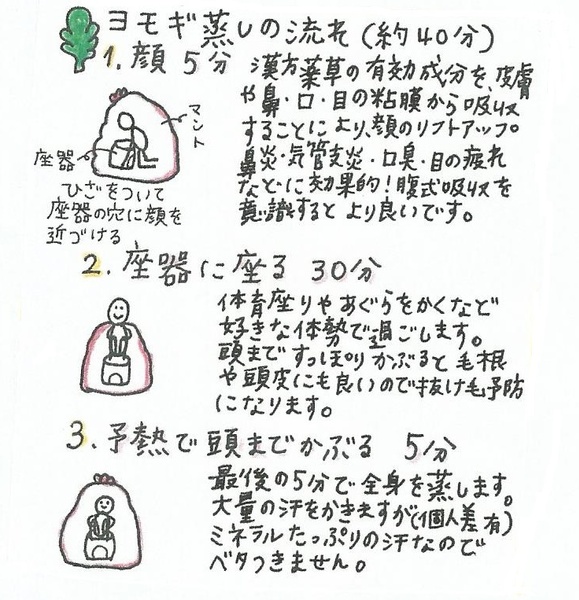 ヨモギ蒸しの流れ（約40分）
1. 顔 5分
マント
座器
ひざをついて
座器の穴に顔を
近づける
漢方薬草の有効成分を、皮膚
や鼻・口・目の粘膜から吸収
することにより、顔のリフトアップ。
鼻炎・気管支炎・口臭・目の疲れ
などに効果的！腹式吸収を
意識するとより良いです。
2. 座器に座る 30分
体育座りやあぐらをかくなど
好きな体勢で過ごします。
頭まですっぽりかぶると毛根
や頭皮にも良いので抜け毛予防
になります。
3. 予熱で頭までかぶる 5分
最後の5分で全身を蒸します。
大量の汗をかきますが（個人差有）
ミネラルたっぷりの汗なので
ベタつきません。